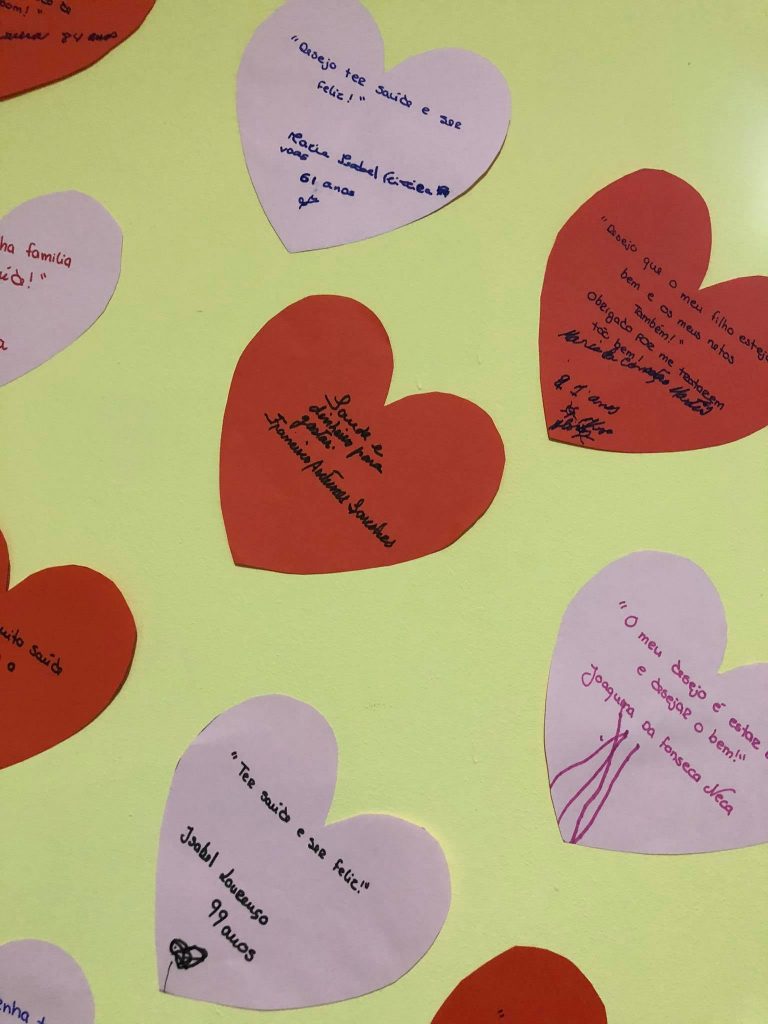 om!"
84 anos
"Desejo ter saúde e ser
feliz!"
Maria Isabel
61 anos
nha familia
úde!"
a
"Desejo que o meu filho esteja
bem e os meus netos
também!"
Obrigado por me tratarem
tão bem!
Maria da Conceição
anos
Saude e
dinheiro para
gastar.
Francisco Antunes
uito saúde
a
"O meu desejo é estar
e desejar o bem!"
Joaquina da Fonseca Neca
"Ter saúde e ser feliz!"
Isabel Lourenso
99 anos
enha